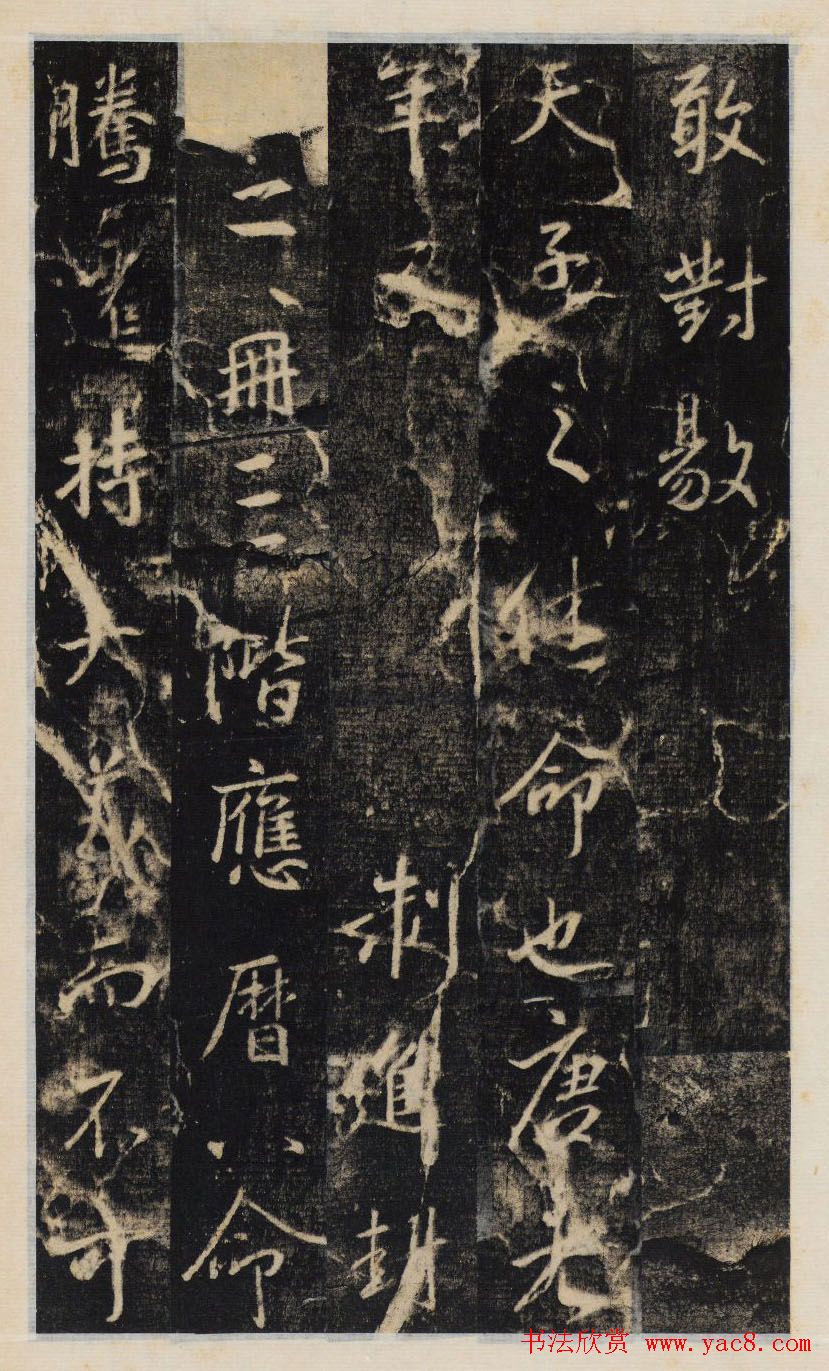 敢對敭
天子之休命也唐元
年 制進封
二冊二三階應曆八命
騰持大義而不可
書法欣赏 www.yac8.com